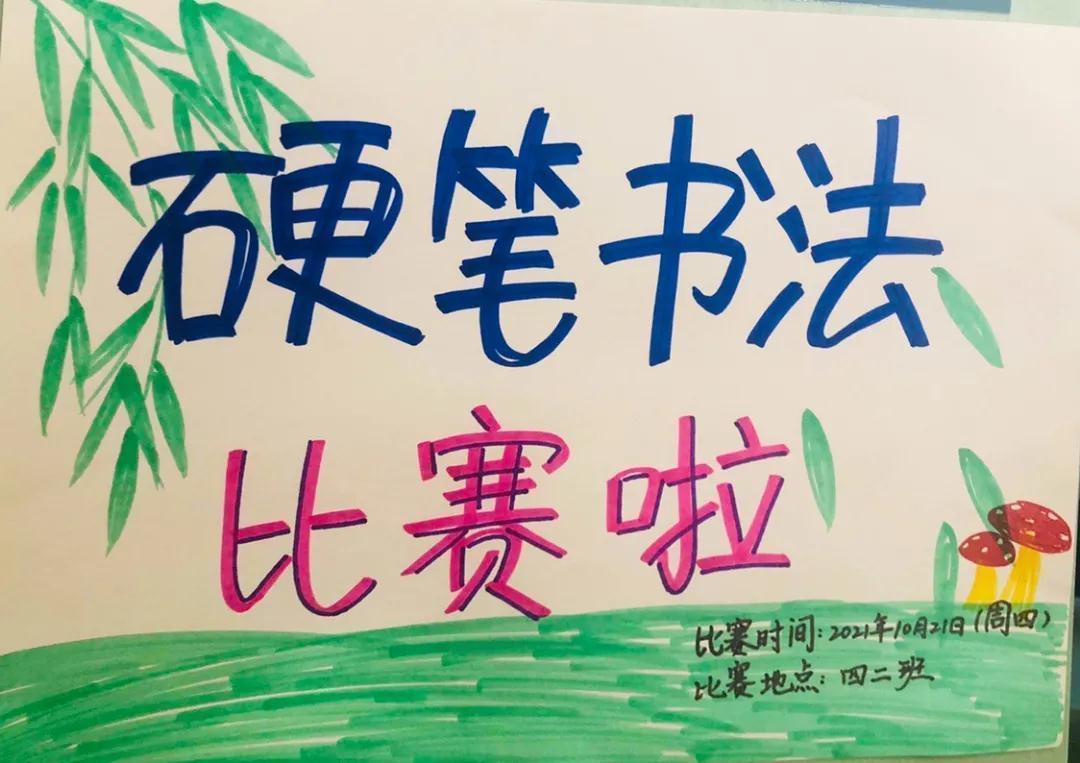 硬笔书法
比赛啦
比赛时间：2021年10月21日（周四）
比赛地点：四二班